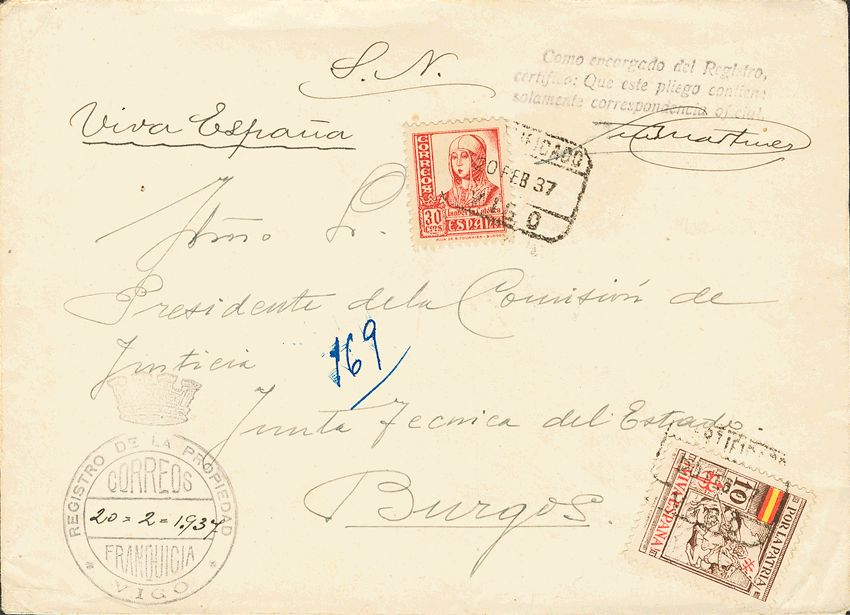 S. N.
Como encargado del Registro,
certifico: Que este pliego contiene
solamente correspondencia oficial.
Viva España
CORREOS
30 CTS
Isabel
ESPAÑA
HIJA DE B. FOURNIER - BURGOS
20 FEB 37
VIGO
Presidente de la Comisión de
Justicia
169
Junta Tecnica del Estado.
Burgos.
REGISTRO DE LA PROPIEDAD
CORREOS
20=2=1.937
FRANQUICIA
VIGO
10
POR LA PATRIA
VIVA ESPAÑA